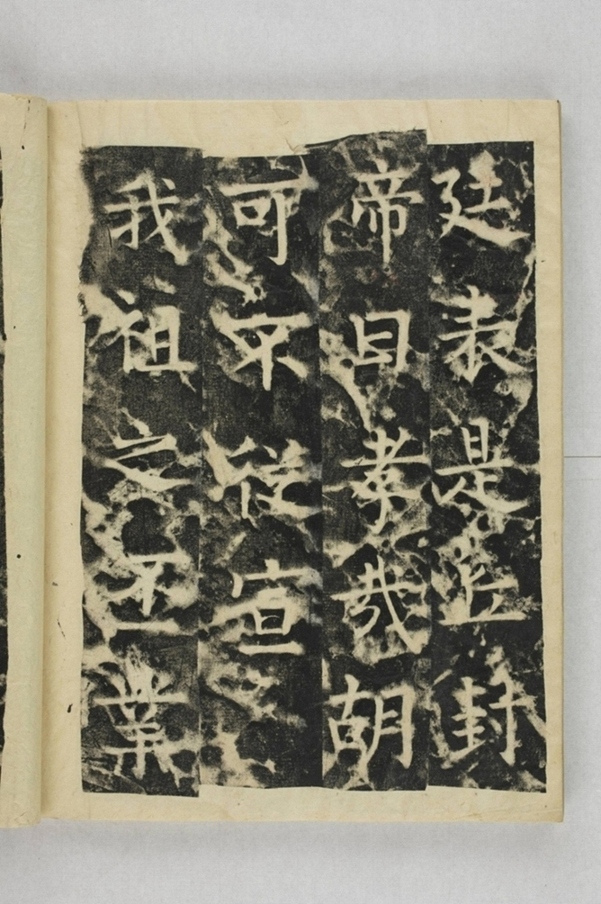 廷表是丘封
帝曰孝哉胡
可不從宣
我祖之丕業